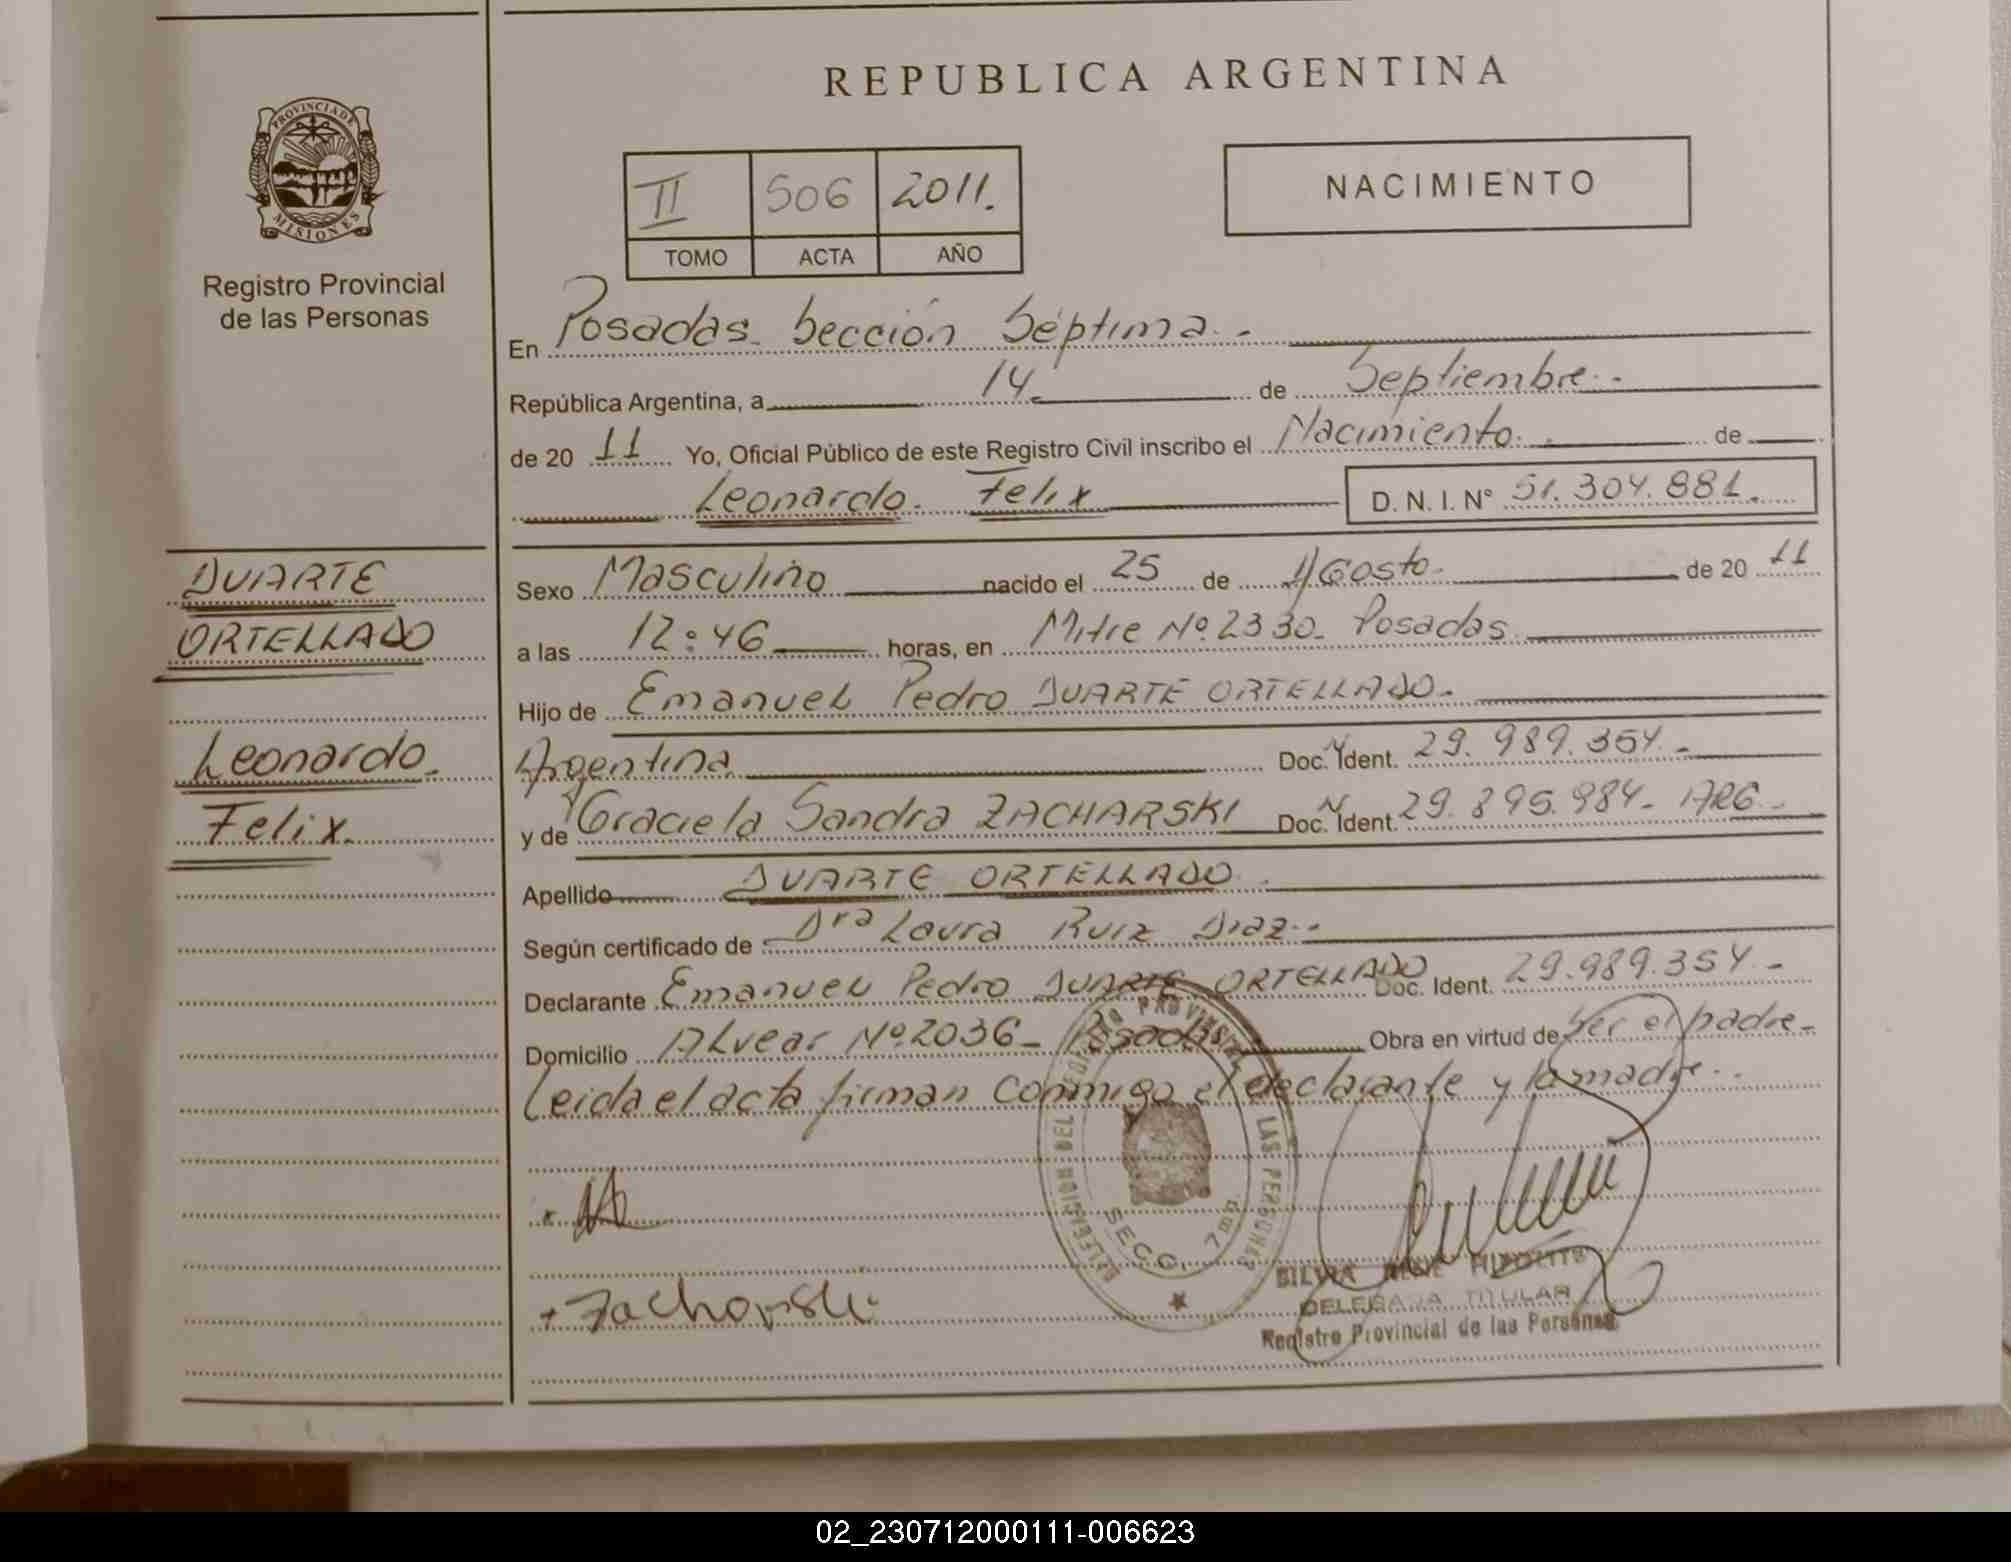 REPUBLICA ARGENTINA
PROVINCIA DE
MISIONES
Registro Provincial
de las Personas
II 506 2011.
TOMO ACTA AÑO
NACIMIENTO
En Posadas. Sección Séptima.-
República Argentina, a 14 de Septiembre.-
de 20 11 Yo, Oficial Público de este Registro Civil inscribo el Nacimiento. de
Leonardo. Felix D. N. I. N° 51.304.881.
DUARTE
ORTELLADO
Leonardo.
Felix.
Sexo Masculino nacido el 25 de Agosto. de 20 11
a las 12:46 horas, en Mitre Nº 2330- Posadas.
Hijo de Emanuel Pedro DUARTE ORTELLADO.
Argentina Doc. N Ident. 29.989.354.-
y de Graciela Sandra ZACHARSKI Doc. N Ident. 29.895.984- ARG.-
Apellido DUARTE ORTELLADO.
Según certificado de Dra Laura Ruiz Diaz.-
Declarante Emanuel Pedro DUARTE ORTELLADO Doc. Ident. 29.989.354.-
Domicilio Alvear Nº 2036- Posadas Obra en virtud de Ser el padre-
Leida el acta firman conmigo el declarante y la madre.-
DELEGACION DEL REGISTRO PROVINCIAL DE LAS PERSONAS
SECC. 7ma
Zacharski
SILVIA RENE HIPOLITO
DELEGADA TITULAR
Registro Provincial de las Personas
02_230712000111-006623